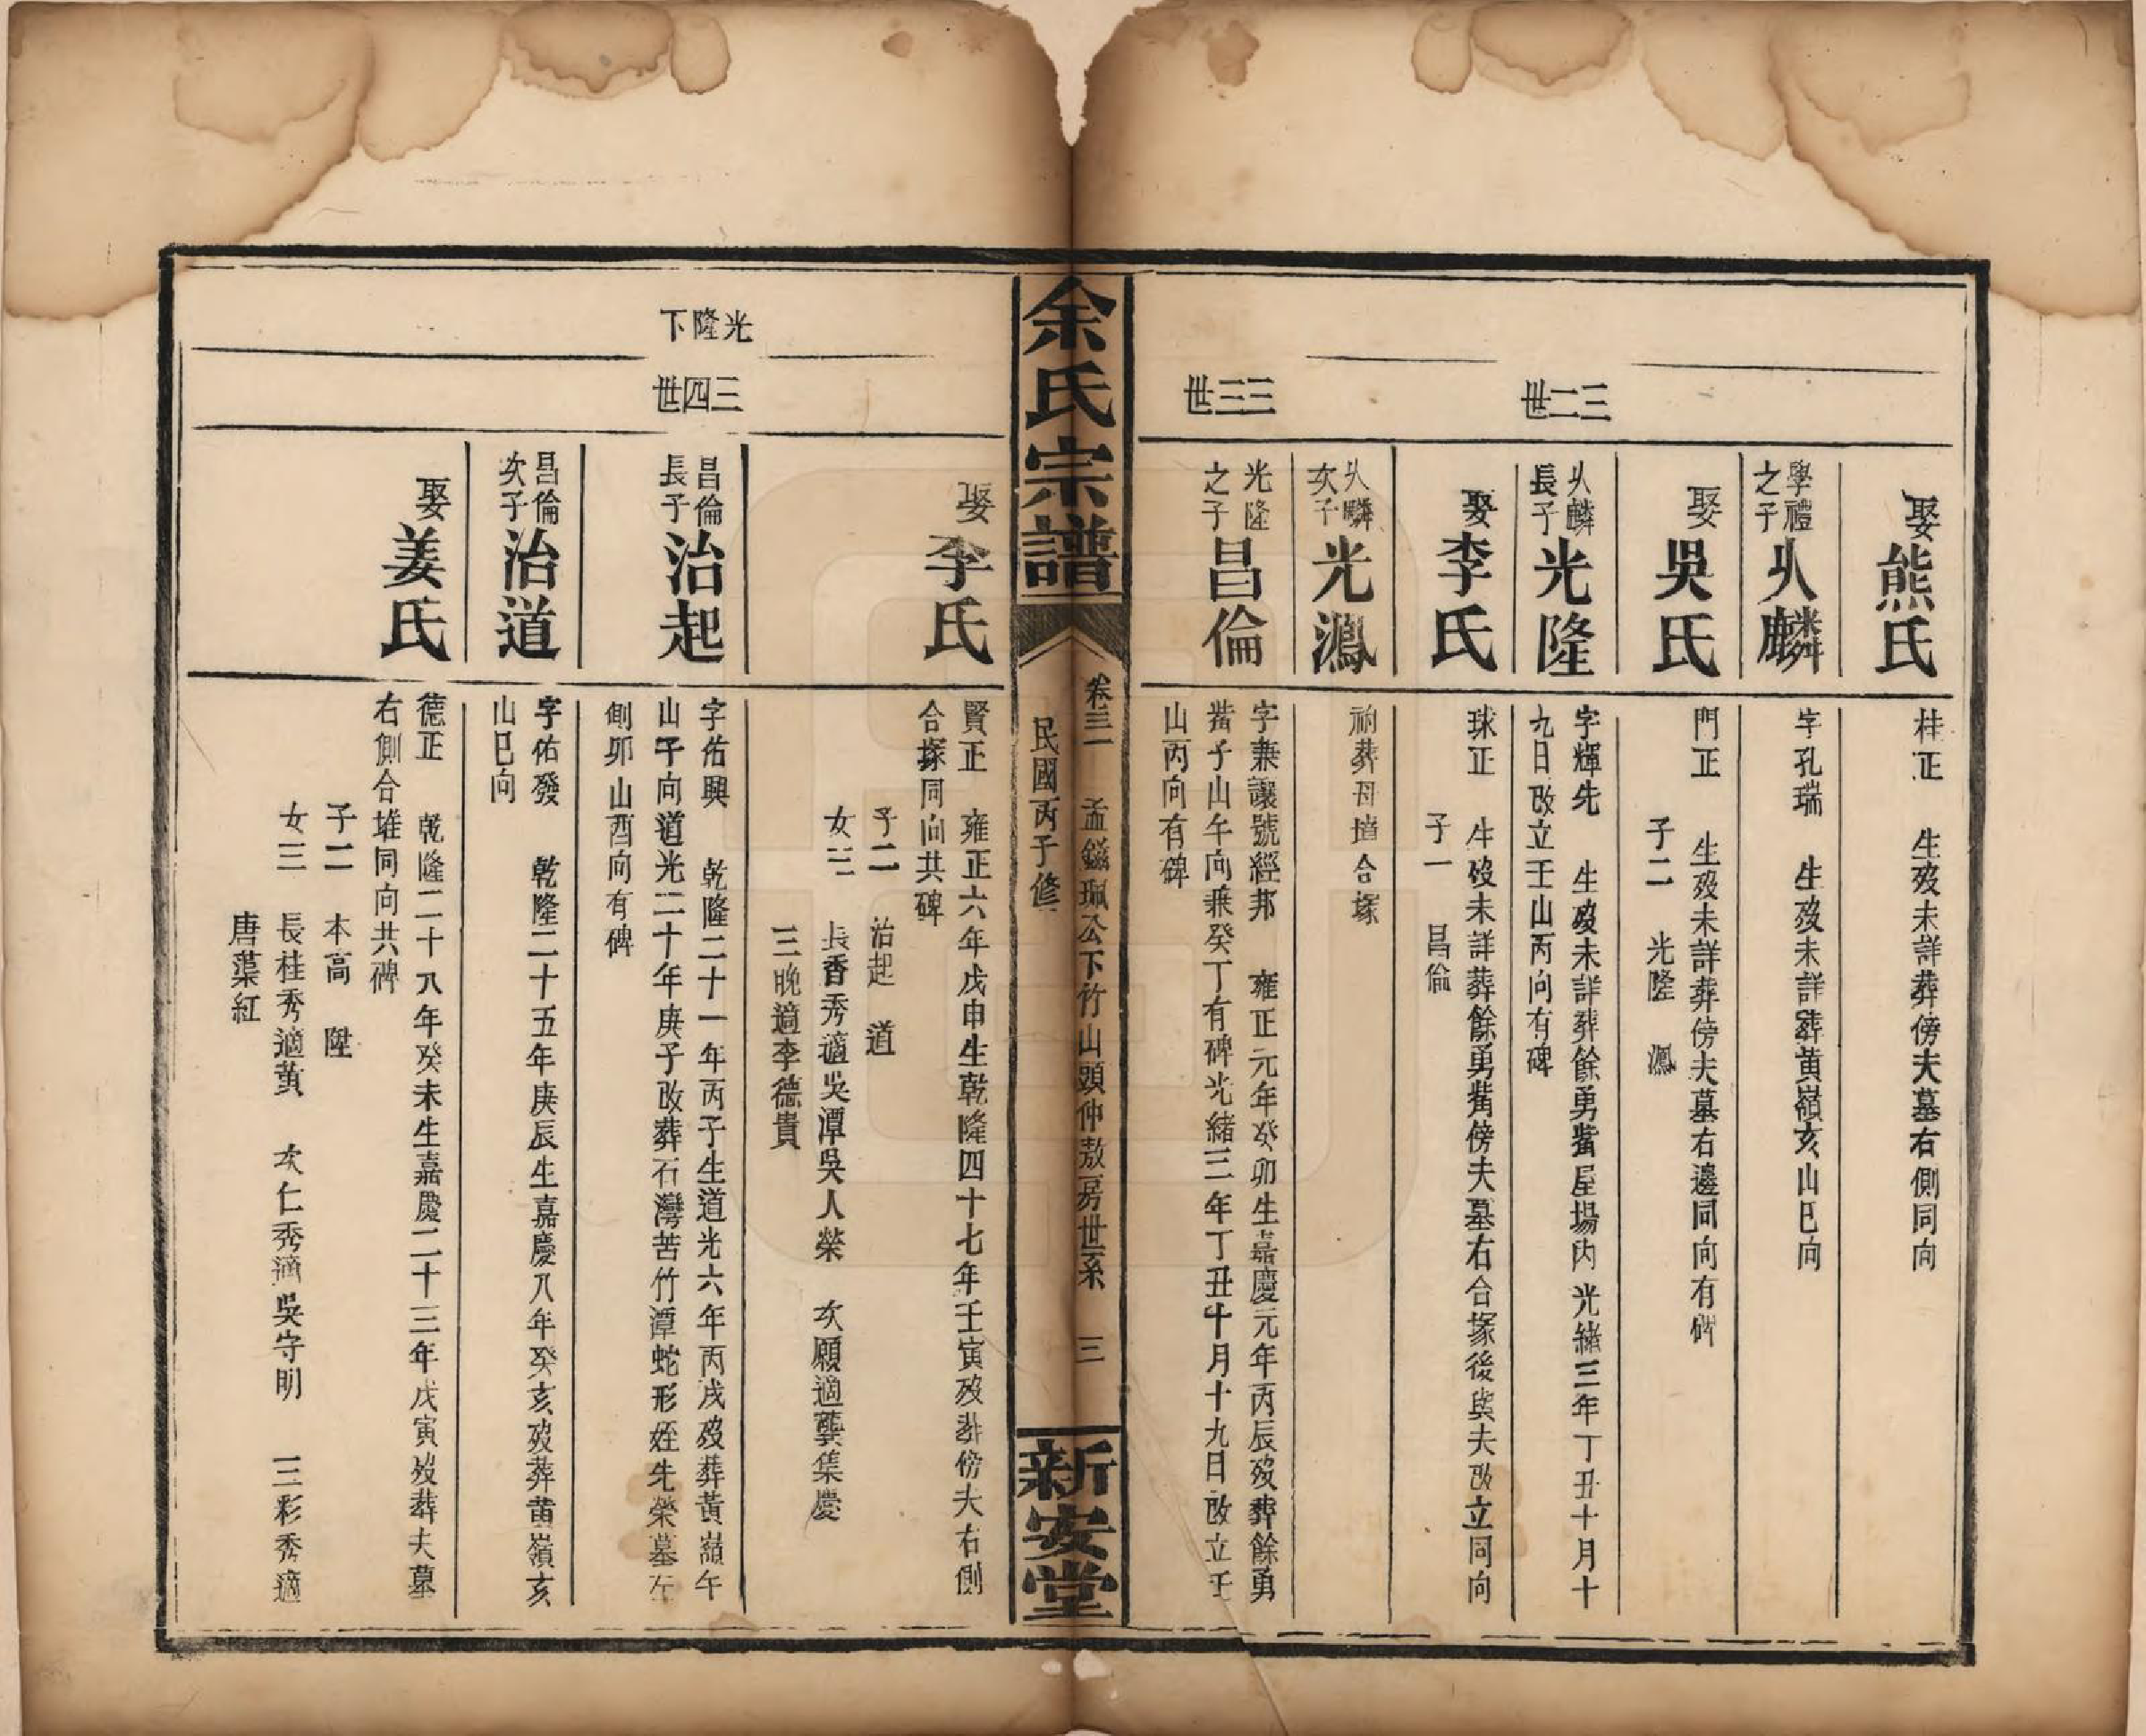 娶熊氏
桂正　生歿未詳葬傍夫墓右側同向
三二世
學禮
之子
𠆤麟
字孔瑞　生歿未詳葬黃嶺亥山巳向
娶吳氏
門正　生歿未詳葬傍夫墓右邊同向有碑
子二　光隆　鳳
麟
長子
光隆
字輝先　生歿未詳葬餘勇觜屋場內光緒三年丁丑十月十
九日改立壬山丙向有碑
娶李氏
球正　生歿未詳葬餘勇觜傍夫墓右合塚後與夫改立同向
子一　昌倫
三三世
麟
次子
光鳳
祔葬母墳合塚
光隆
之子
昌倫
字兼讓號經邦　雍正元年癸卯生嘉慶元年丙辰歿葬餘勇
觜子山午向兼癸丁有碑光緒三年丁丑十月十九日改立壬
山丙向有碑
余氏宗譜
卷三一　孟鎡珮公下竹山頭仲敖房世系　三
民國丙子修
新安堂
娶李氏
賢正　雍正六年戊申生乾隆四十七年壬寅歿葬傍夫右側
合塚同向共碑
子二　治起　道
女三　長香秀適吳潭吳人榮　次願適龔集慶
三晚適李德貴
光隆下
三四世
昌倫
長子
治起
字佑興　乾隆二十一年丙子生道光六年丙戌歿葬黃嶺午
山子向道光二十年庚子改葬石灣苦竹潭蛇形姪先榮墓左
側卯山酉向有碑
昌倫
次子
治道
字佑發　乾隆二十五年庚辰生嘉慶八年癸亥歿葬黃嶺亥
山巳向
娶姜氏
德正　乾隆二十八年癸未生嘉慶二十三年戊寅歿葬夫墓
右側合堆同向共碑
子二　本高　陞
女三　長桂秀適黃　次仁秀適吳守明　三彩秀適
唐葉紅